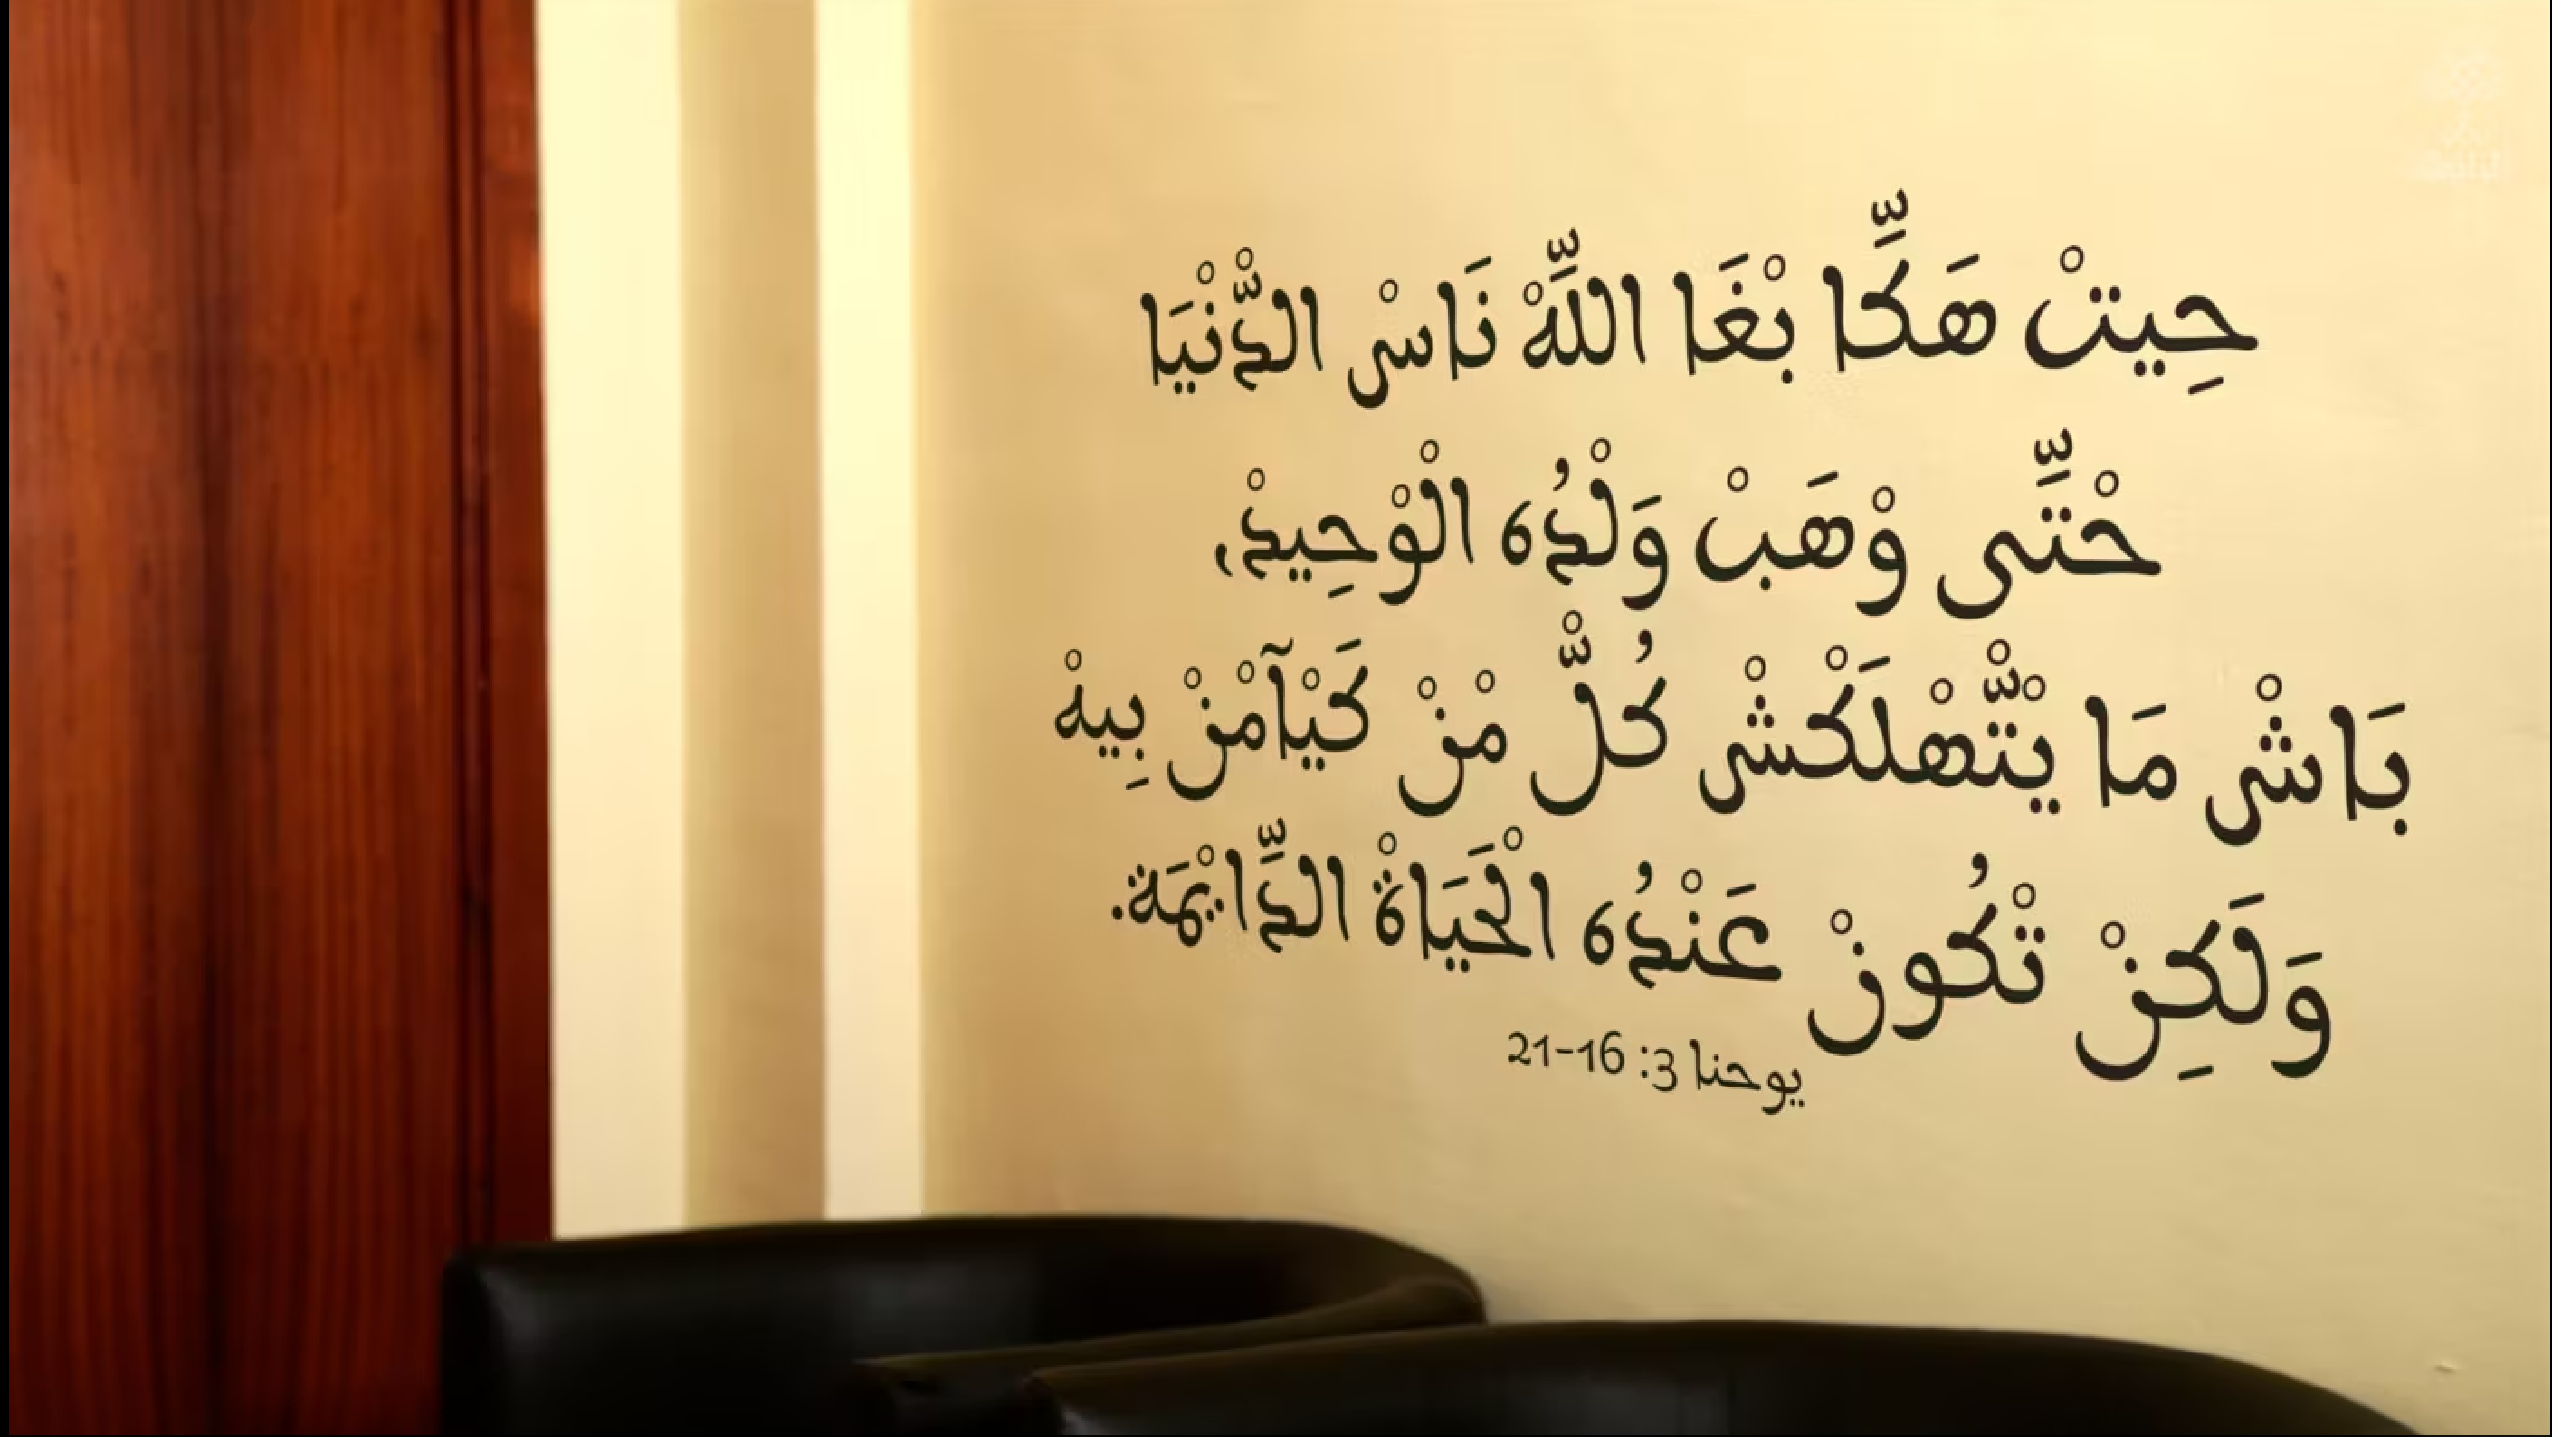 حِيتْ هَكَّا بْغَا اللَّهْ نَاسْ الدّْنْيَا
حْتَّى وْهَبْ وَلْدُه الْوْحِيدْ،
بَاشْ مَا يْتّْهْلَكْشْ كُلّْ مْنْ كَيْآمْنْ بِيهْ
وَلَكِنْ تْكُونْ عَنْدُه الْحَيَاةْ الدَّايْمَة.
يوحنا 3: 16-21